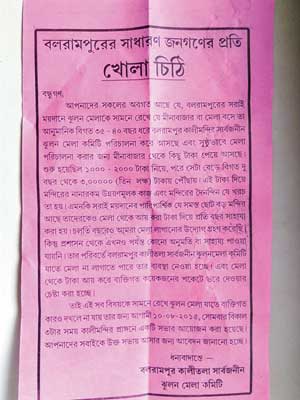 বলরামপুরের সাধারণ জনগণের প্রতি
খোলা চিঠি
বন্ধুগণ,
আপনাদের সকলের অবগত আছে যে, বলরামপুরের সরাই
ময়দানে ঝুলন মেলাকে সামনে রেখে যে মীনাবাজার বা মেলা বসে তা
আনুমানিক বিগত ৩৫ - ৪০ বছর ধরে বলরামপুর কালীমন্দির সার্বজনীন
ঝুলন মেলা কমিটি পরিচালনা করে আসছে এবং সুষ্ঠুভাবে মেলা
পরিচালনা করার জন্য মীনাবাজার থেকে কিছু টাকা পেয়ে আসছে।
শুরু হয়েছিল ১০০০ - ২০০০ টাকা নিয়ে, পরে সেটা বেড়ে বিগত দু
বছর থেকে ৩,০০০০০ (তিন লক্ষ) টাকায় পৌঁছায়। এই টাকা দিয়ে
মন্দিরের নানারকম উন্নয়নমূলক কাজ এবং মন্দিরের দৈনন্দিন যে খরচ
তা হয়। এমনকি সরাই ময়দানের পারিপার্শ্বিক যে সমস্ত ছোট বড় মন্দির
আছে তাদেরকেও মেলা থেকে আয় করা টাকা দিয়ে প্রতি বছর সাহায্য করা
হয়। চলতি বছরেও আমরা মেলা লাগানোর উদ্যোগ গ্রহণ করেছি।
কিন্তু প্রশাসন থেকে এখনও পর্যন্ত কোনো অনুমতি বা সাহায্য পাওয়া
যায়নি। তার পরিবর্তে বলরামপুর কালীতলা সার্বজনীন ঝুলনমেলা কমিটি
যাতে মেলা না লাগাতে পারে তার ব্যবস্থা নেওয়া হচ্ছে। এবং মেলা
থেকে টাকা আয় করে ব্যক্তিগত কয়েকজনের পকেটে ভরে দেওয়ার
চেষ্টা করা হচ্ছে।
তাই এই সব বিষয়কে সামনে রেখে ঝুলন মেলা যাতে ব্যক্তিগত
কারও দখলে না যায় তার জন্য আগামী ১০-০৮-২০১৫, সোমবার বিকাল
৩টার সময় কালীমন্দির প্রাঙ্গনে একটি সভার আয়োজন করা হয়েছে।
আপনাদের সবাইকে উক্ত সভায় আসার জন্য আবেদন জানানো হচ্ছে।
ধন্যবাদান্তে -
বলরামপুর কালীতলা সার্বজনীন
ঝুলন মেলা কমিটি